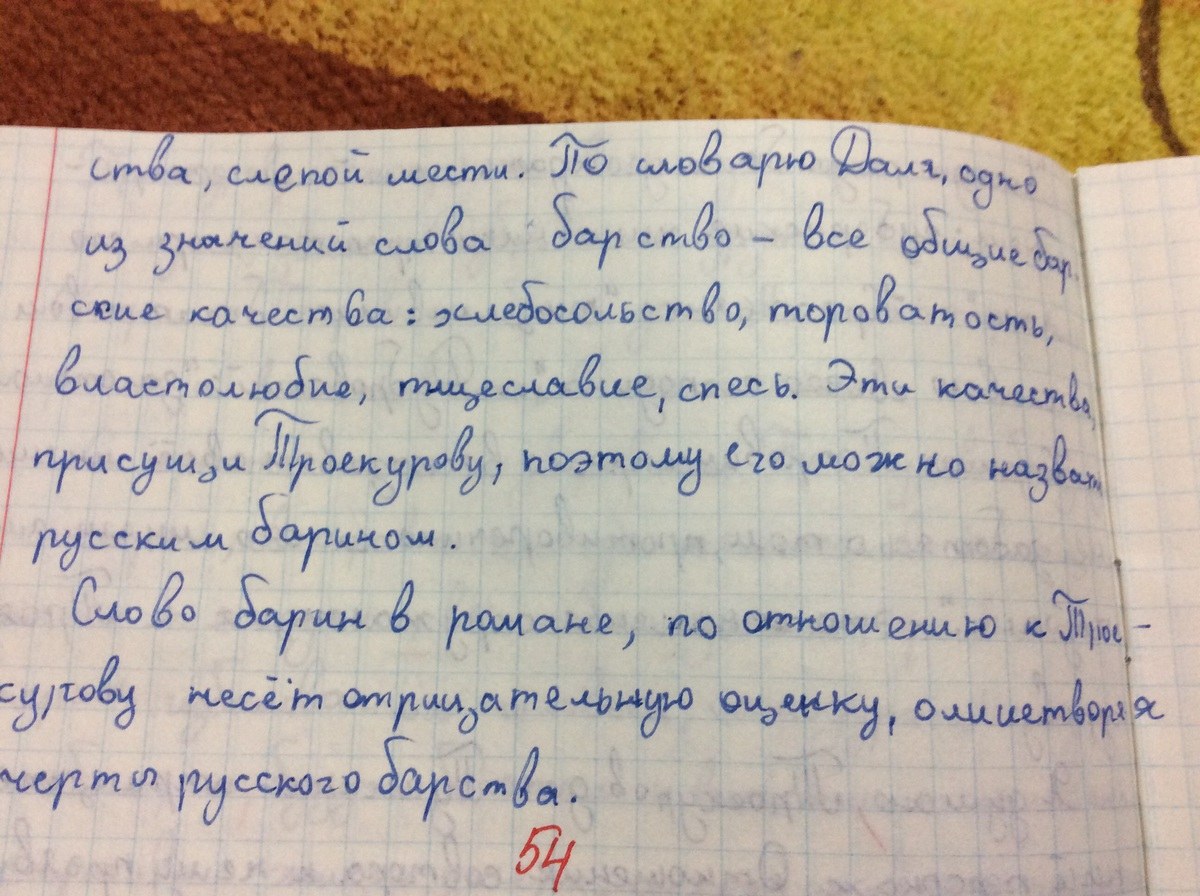 ства, слепой мести. По словарю Даля, одно
из значений слова барство – все общие бар.
ские качества: хлебосольство, тороватость,
властолюбие, тщеславие, спесь. Эти качества,
присущи Троекурову, поэтому его можно назват
русским барином.
Слово барин в романе, по отношению к Трое-
курову несёт отрицательную оценку, олицетворяя
черты русского барства.
54